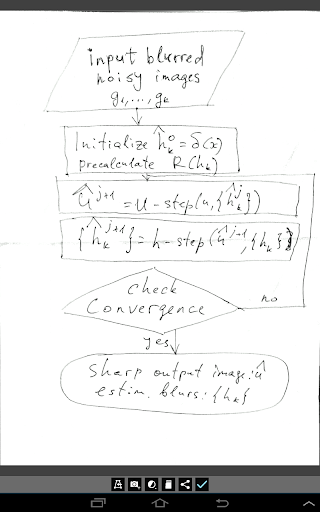 input blurred
noisy images
g₁,...,gₖ
Initialize ĥₖ⁰=δ(x)
precalculate R(hₖ)
û^{j+1}=u-step(u,{ĥₖ^j})
{ĥₖ^{j+1}}=h-step(û^{j+1},{hₖ})
check
Convergence
no
yes
Sharp output image:û
estim. blurs:{hₖ}